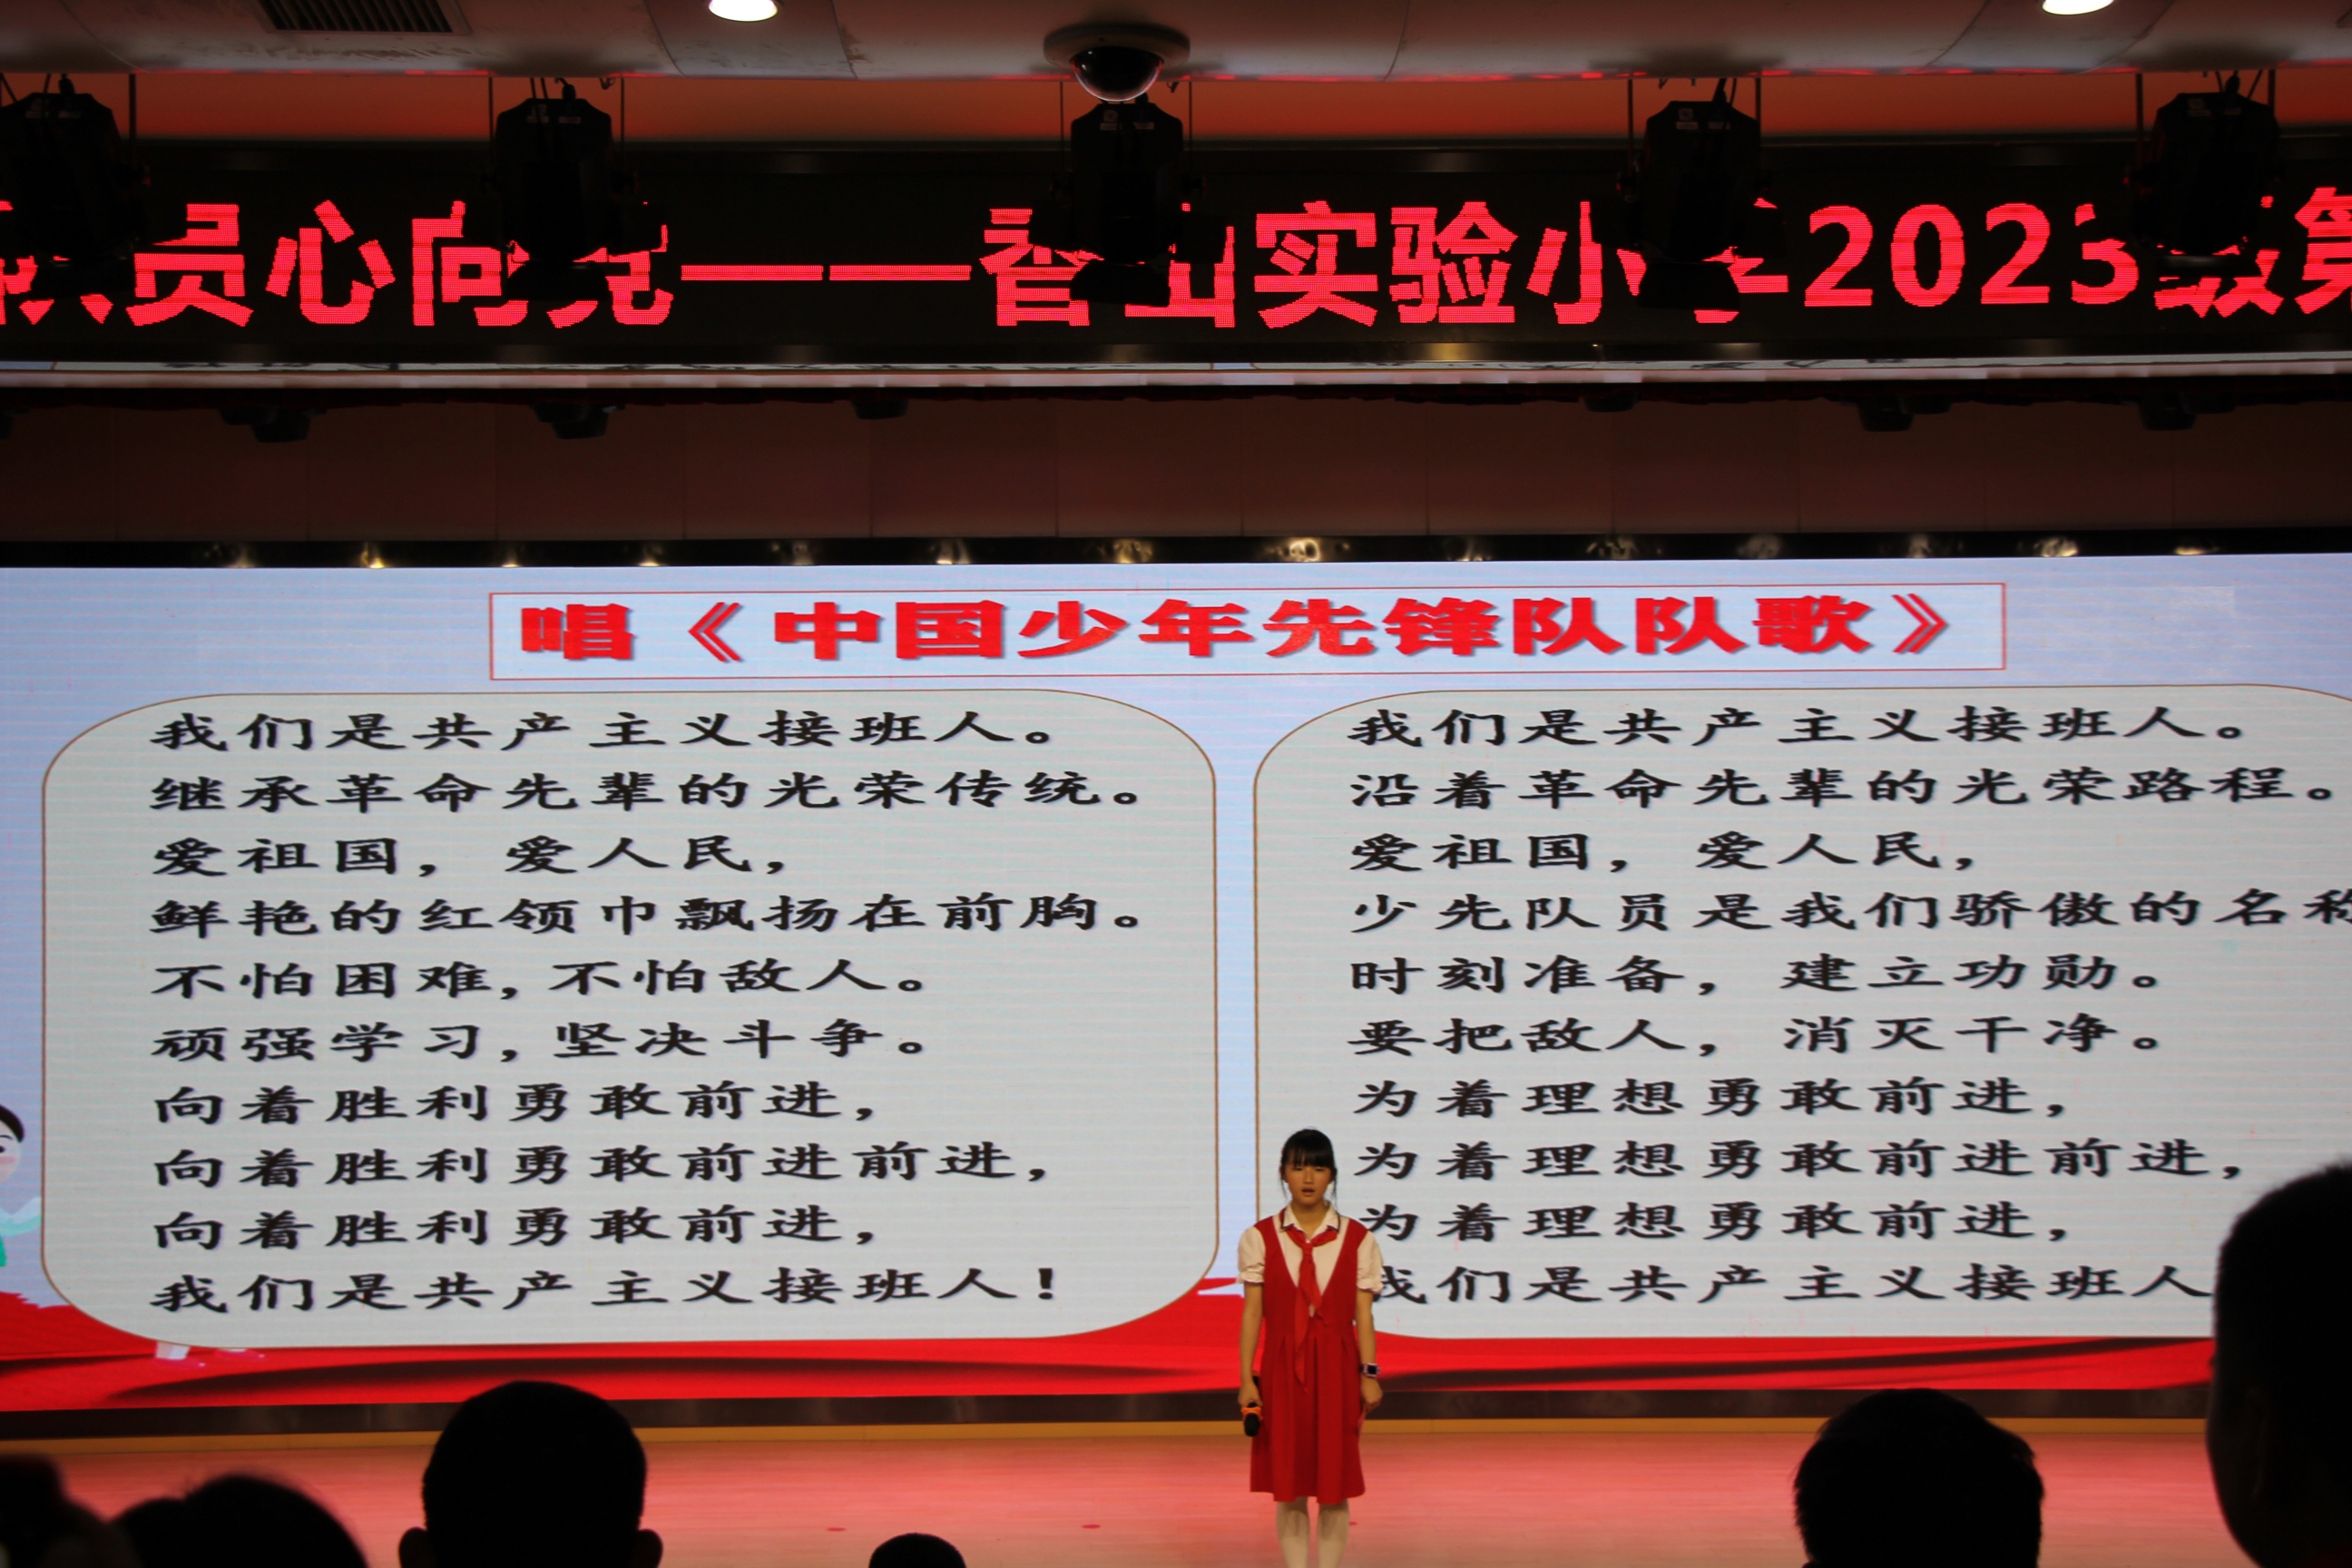 队员心向党——香山实验小学2023级第
唱《中国少年先锋队队歌》
我们是共产主义接班人。
继承革命先辈的光荣传统。
爱祖国，爱人民，
鲜艳的红领巾飘扬在前胸。
不怕困难，不怕敌人。
顽强学习，坚决斗争。
向着胜利勇敢前进，
向着胜利勇敢前进前进，
向着胜利勇敢前进，
我们是共产主义接班人！
我们是共产主义接班人。
沿着革命先辈的光荣路程。
爱祖国，爱人民，
少先队员是我们骄傲的名称
时刻准备，建立功勋。
要把敌人，消灭干净。
为着理想勇敢前进，
为着理想勇敢前进前进，
为着理想勇敢前进，
我们是共产主义接班人